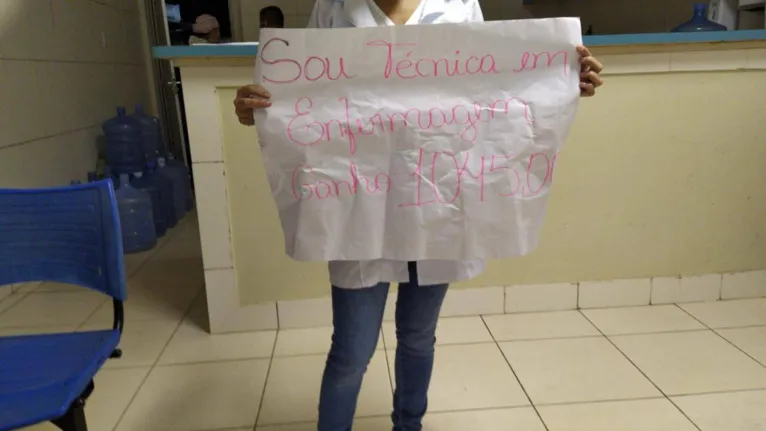 Sou Técnica em
Enfermagem
Ganho 1.045,00